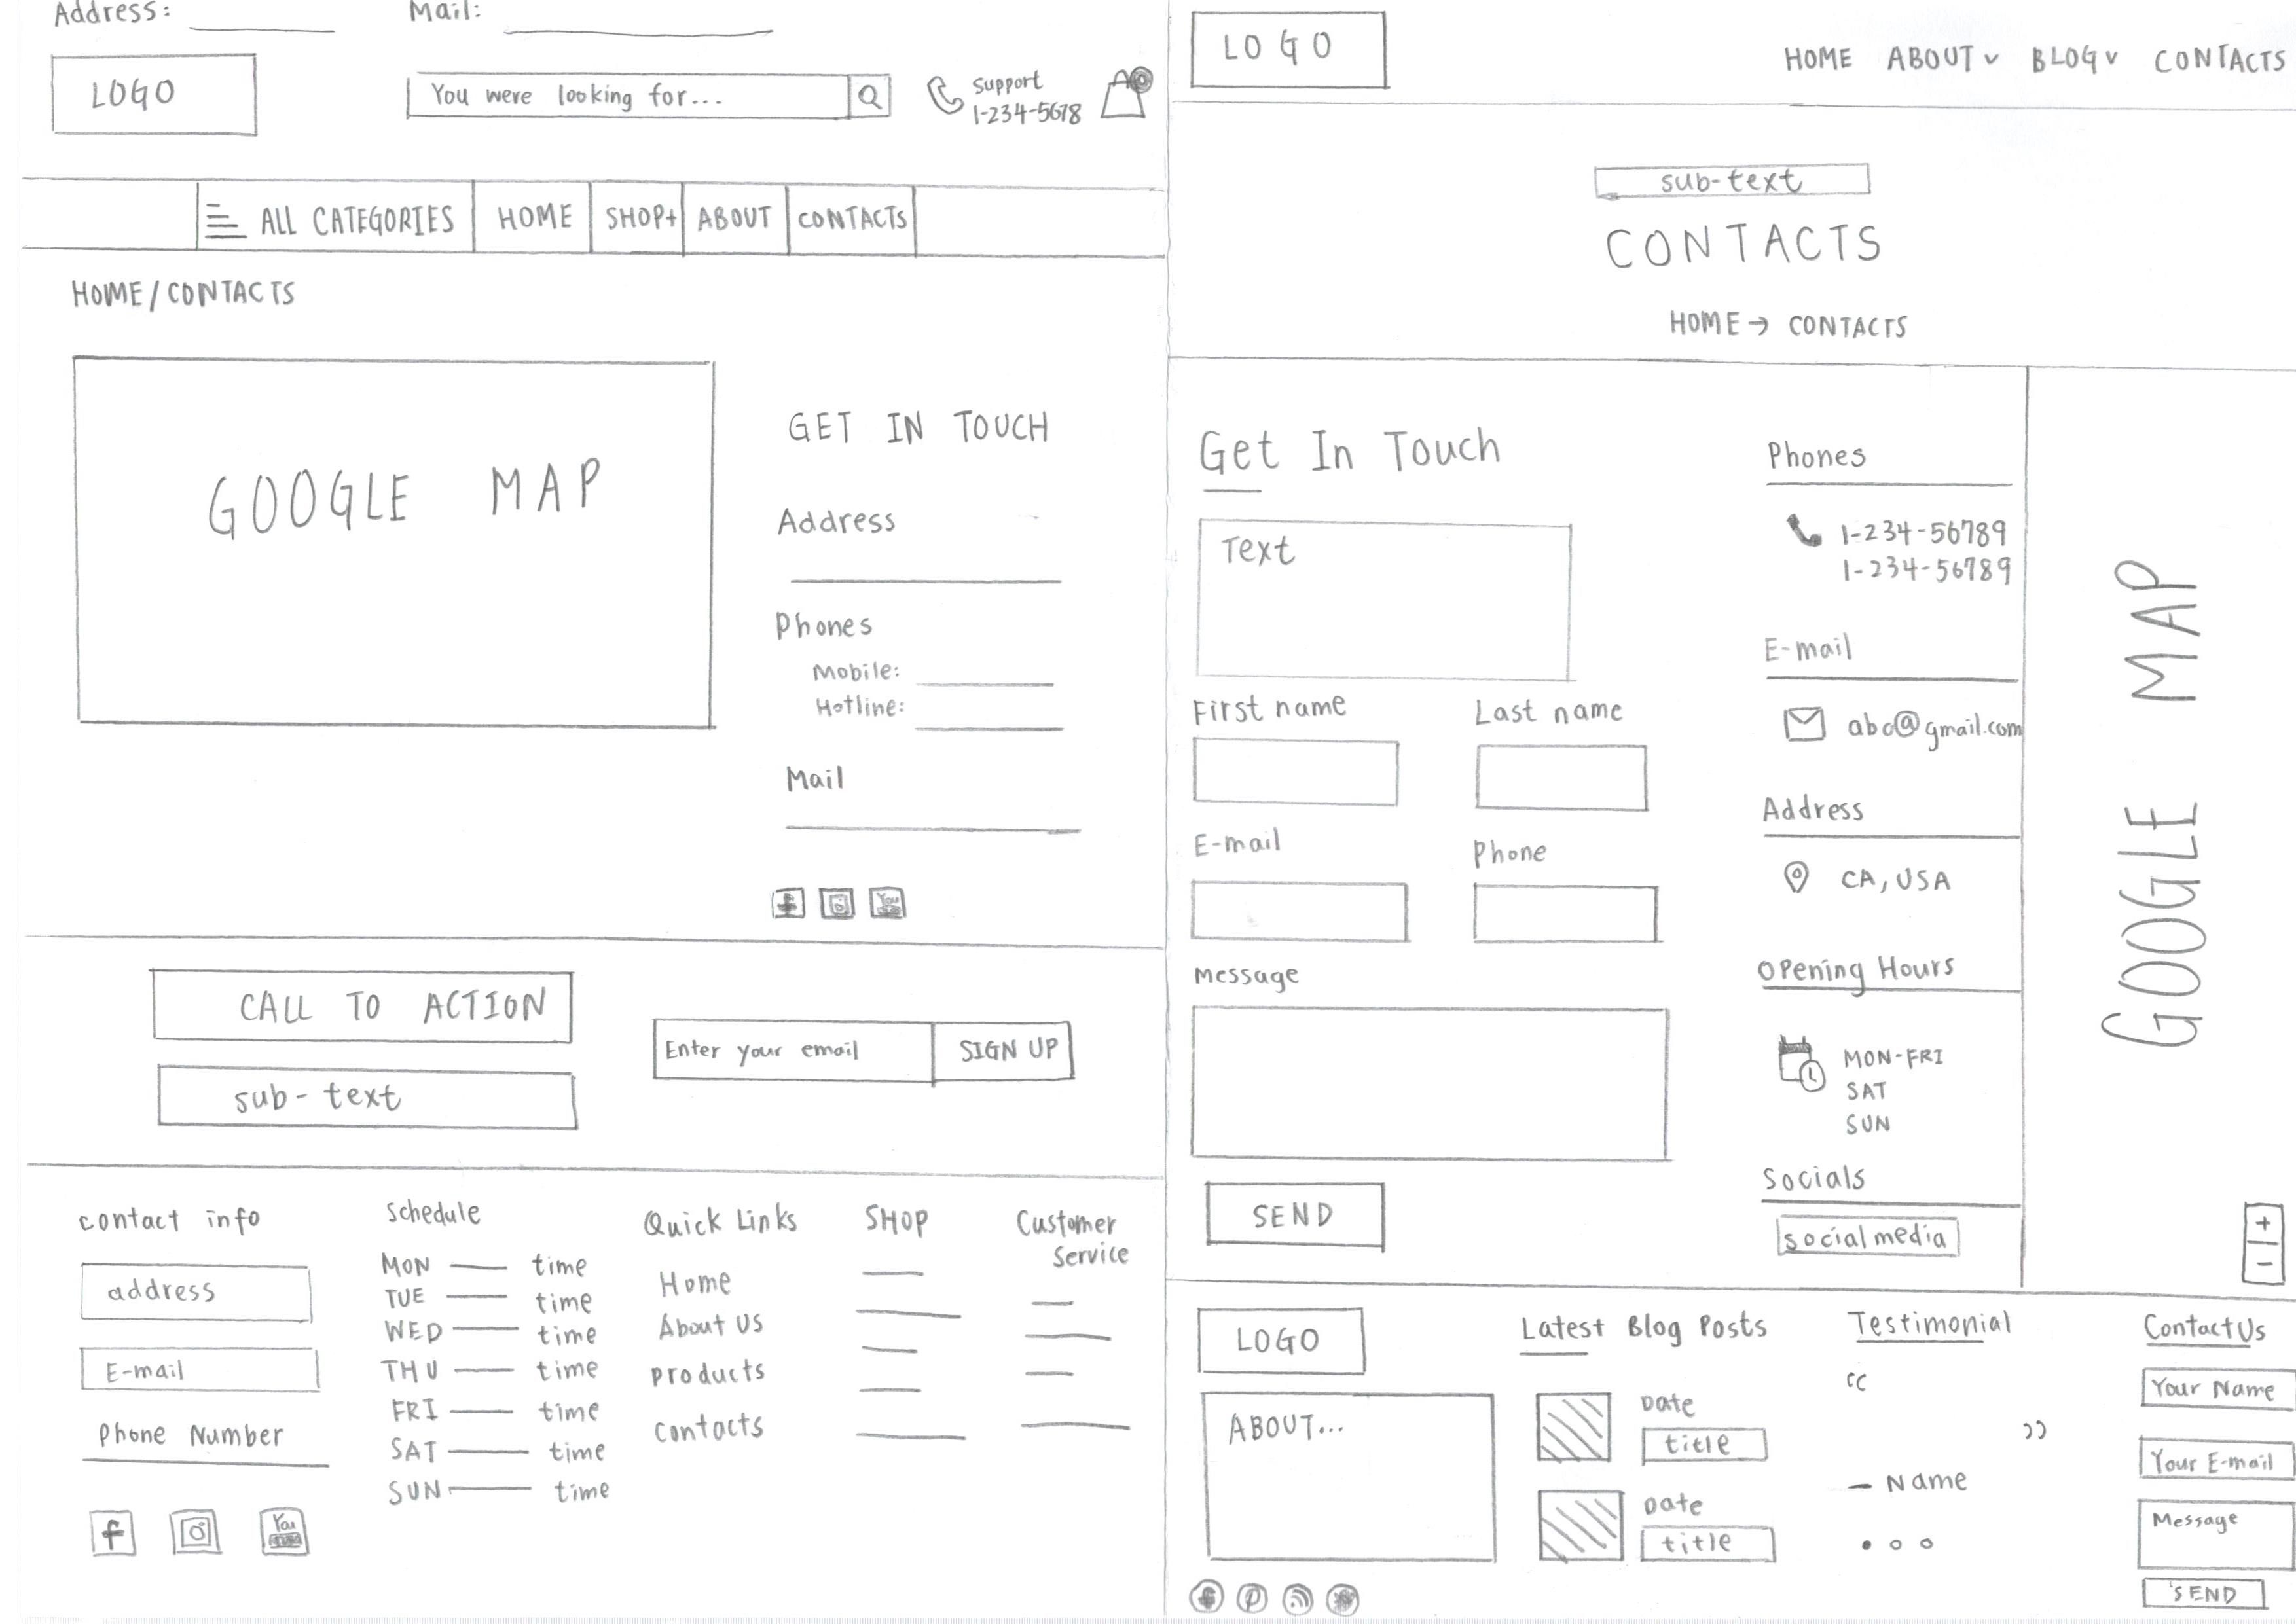 Address:
Mail:
LOGO
You were looking for...
support
1-234-5678
ALL CATEGORIES
HOME
SHOP+
ABOUT
CONTACTS
HOME/CONTACTS
GOOGLE MAP
GET IN TOUCH
Address
Phones
Mobile:
Hotline:
Mail
f
You
CALL TO ACTION
sub-text
Enter your email
SIGN UP
contact info
address
E-mail
Phone Number
f
You
Tube
Schedule
MON — time
TUE — time
WED — time
THU — time
FRI — time
SAT — time
SUN — time
Quick Links
Home
About Us
products
contacts
SHOP
Customer
Service
LOGO
HOME ABOUT v BLOG v CONTACTS
sub-text
CONTACTS
HOME → CONTACTS
Get In Touch
Text
First name
Last name
E-mail
Phone
Message
SEND
Phones
1-234-56789
1-234-56789
E-mail
abc@gmail.com
Address
CA, USA
Opening Hours
MON-FRI
SAT
SUN
Socials
social media
GOOGLE MAP
+
-
LOGO
ABOUT...
f
P
Latest Blog Posts
Date
title
Date
title
Testimonial
“
”
— Name
Contact Us
Your Name
Your E-mail
Message
SEND